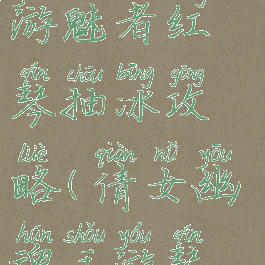 游魅者红
qín chōu bīng gōng
琴抽冰攻
lüè qiàn nǚ yōu
略(倩女幽
hún shǒu yóu qín
魂手游琴